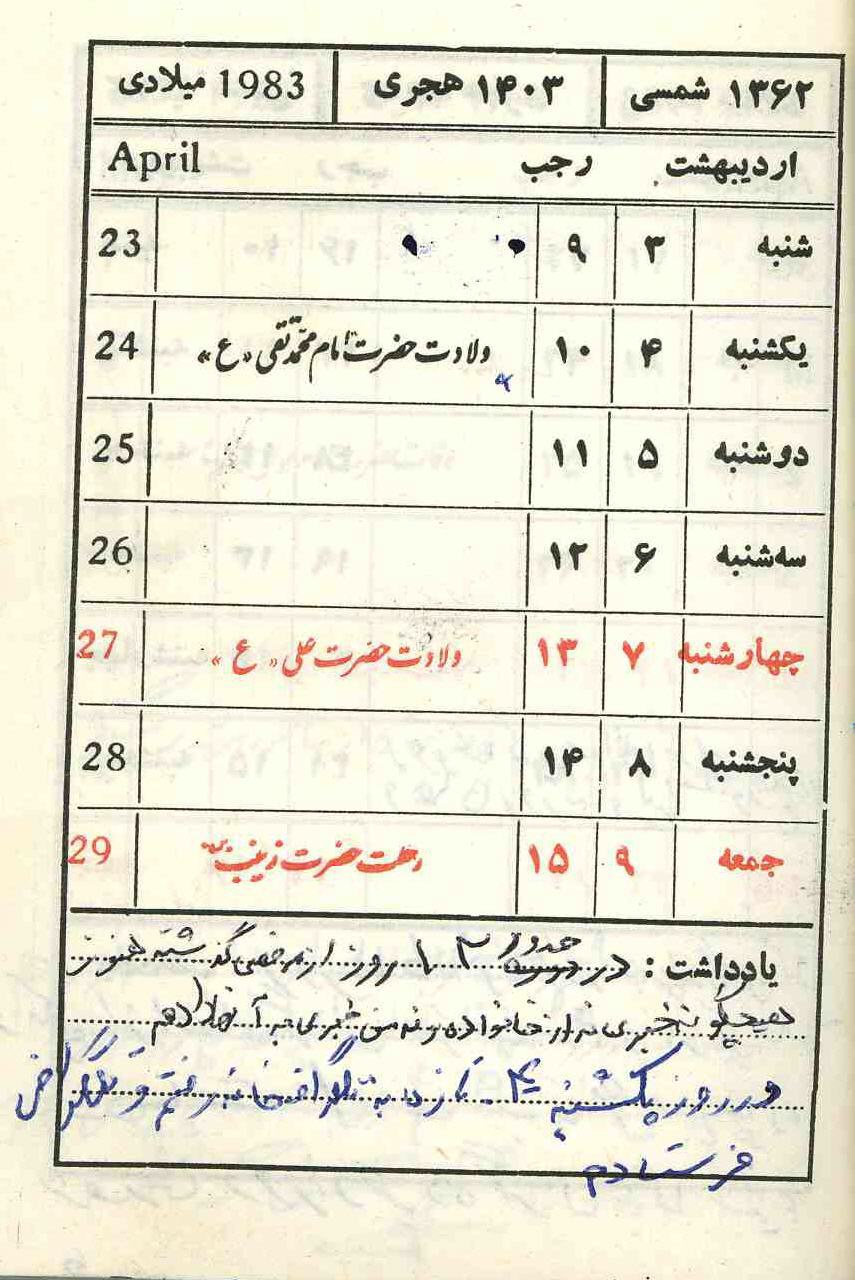 ۱۳۶۲ شمسی ۱۴۰۳ هجری 1983 میلادی
اردیبهشت رجب April
شنبه ۳ ۹ 23
یکشنبه ۴ ۱۰ ولادت حضرت امام محمد تقی «ع» 24
دوشنبه ۵ ۱۱ 25
سه‌شنبه ۶ ۱۲ 26
چهارشنبه ۷ ۱۳ ولادت حضرت علی «ع» 27
پنجشنبه ۸ ۱۴ 28
جمعه ۹ ۱۵ رحلت حضرت زینب 29
حدود
یادداشت : در روز از مرخصی گذشته هنوز
هیچگونه خبری نه از خانواده و نه من خبری به آنها دادم
در روز یکشنبه ۴ به تلگرافخانه رفتم و تلگرافی
فرستادم